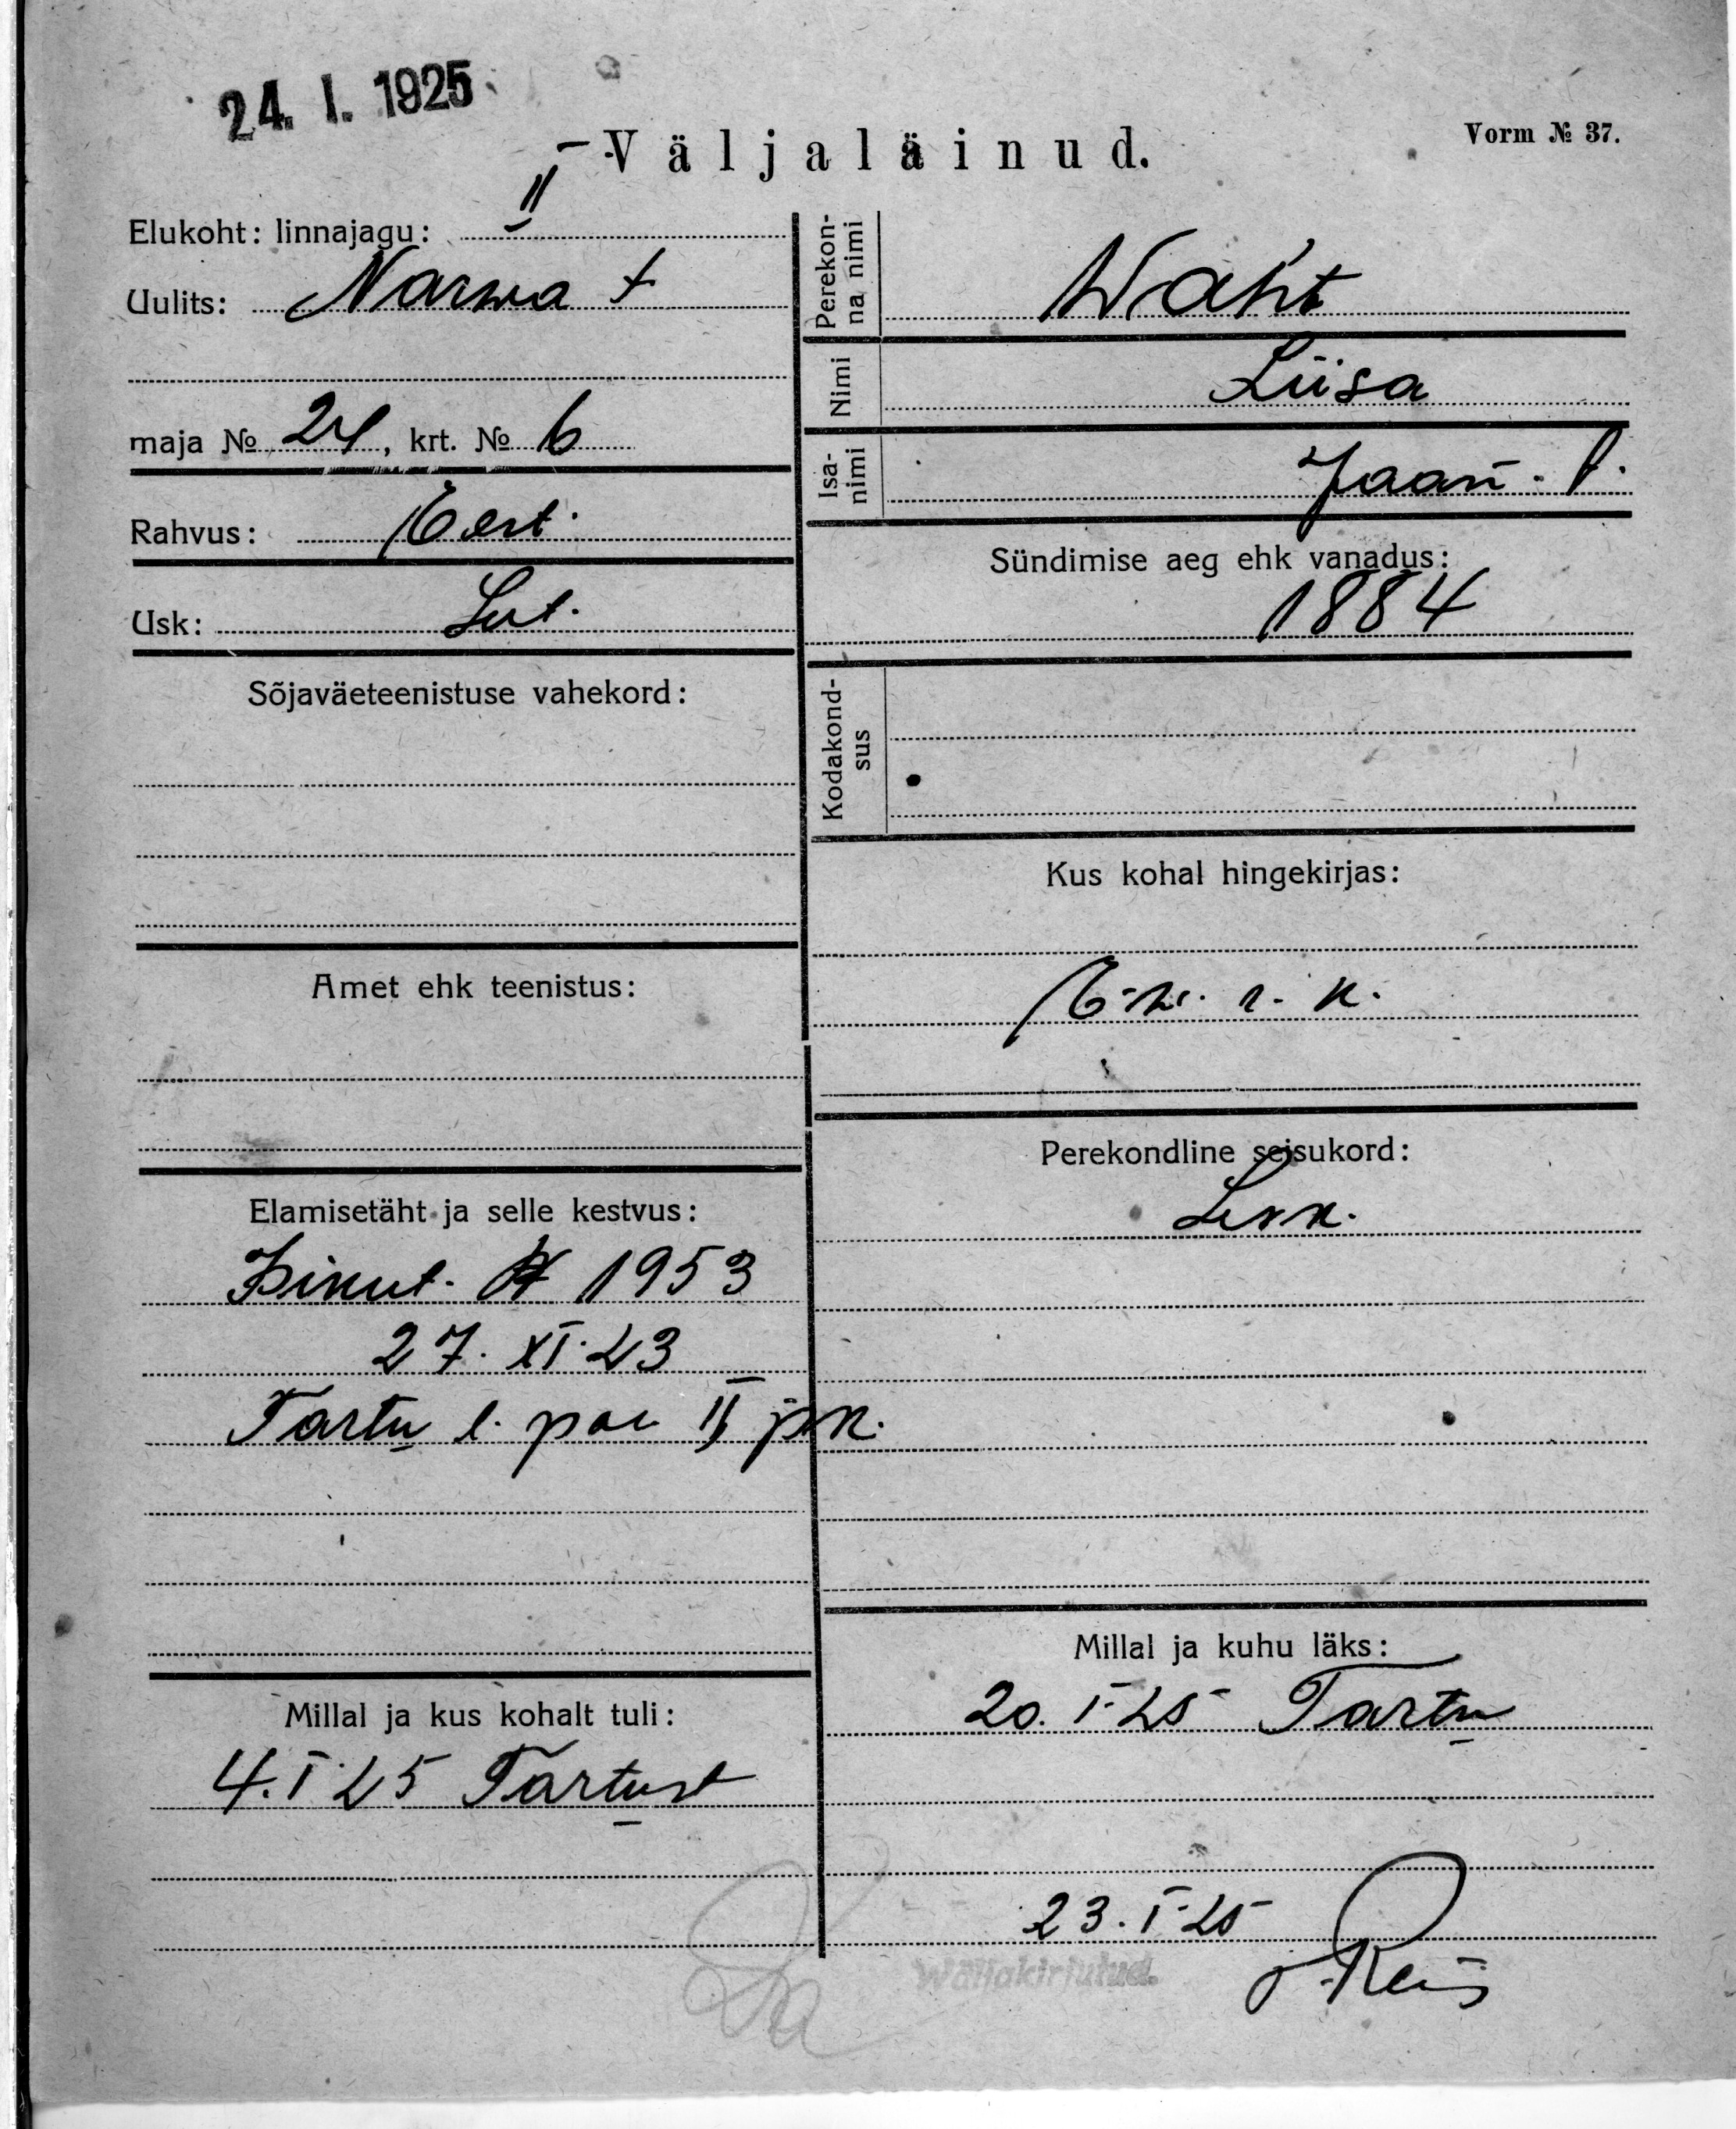 24. I. 1925
Väljaläinud.
Vorm № 37.
Elukoht: linnajagu: II
Uulits: Narwa t
maja № 24, krt. № 6
Rahvus: Eest.
Usk: Lut.
Sõjaväeteenistuse vahekord:
Amet ehk teenistus:
Elamisetäht ja selle kestvus:
Isikut. № 1953
27. XI. 23
Tartu l. pol II jsk.
Millal ja kus kohalt tuli:
4. I 25 Tartust
Perekonna nimi
Waht
Nimi
Liisa
Isanimi
Jaan. t.
Sündimise aeg ehk vanadus:
1884
Kodakondsus
Kus kohal hingekirjas:
Perekondline seisukord:
Lesk.
Millal ja kuhu läks:
20. I 25 Tartu
23. I 25
Wäljakirjutud.